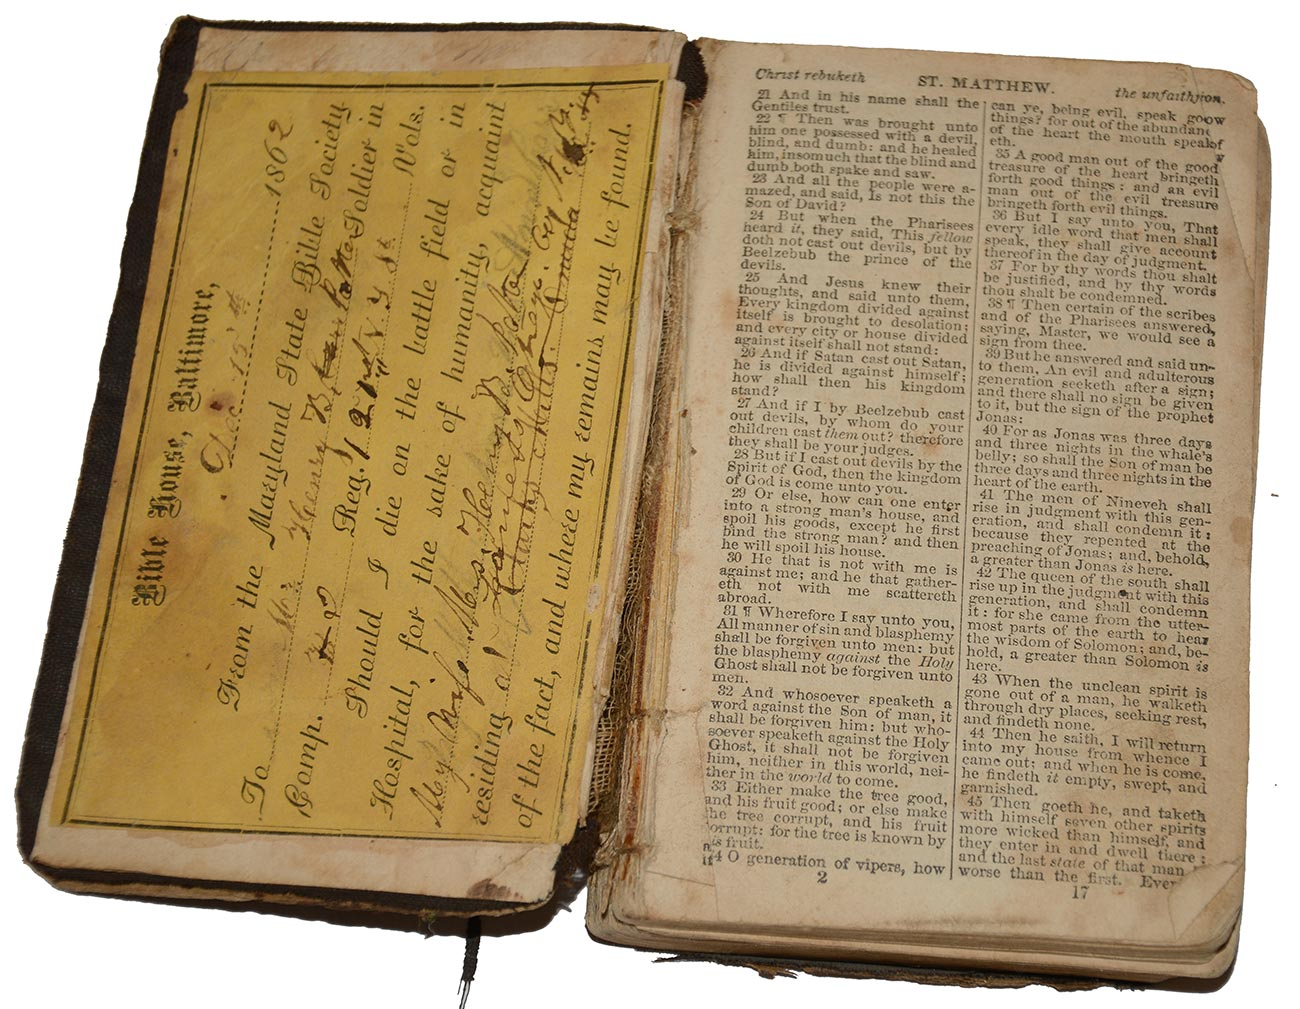 Bible House, Baltimore,
Dec 15th 1862
From the Maryland State Bible Society
To Mr. Henry Soldier in
Comp. Reg. 121st N Y S Vols.
Should I die on the battle field or in
Hospital, for the sake of humanity, acquaint
My wife Mrs
residing at
of the fact, and where my remains may be found.
Christ rebuketh ST. MATTHEW. the
21 And in his name shall the
Gentiles trust.
22 ¶ Then was brought unto
him one possessed with a devil,
blind, and dumb: and he healed
him, insomuch that the blind and
dumb both spake and saw.
23 And all the people were a-
mazed, and said, Is not this the
Son of David?
24 But when the Pharisees
heard it, they said, This fellow
doth not cast out devils, but by
Beelzebub the prince of the
devils.
25 And Jesus knew their
thoughts, and said unto them,
Every kingdom divided against
itself is brought to desolation;
and every city or house divided
against itself shall not stand:
26 And if Satan cast out Satan,
he is divided against himself;
how shall then his kingdom
stand?
27 And if I by Beelzebub cast
out devils, by whom do your
children cast them out? therefore
they shall be your judges.
28 But if I cast out devils by the
Spirit of God, then the kingdom
of God is come unto you.
29 Or else, how can one enter
into a strong man's house, and
spoil his goods, except he first
bind the strong man? and then
he will spoil his house.
30 He that is not with me is
against me; and he that gather-
eth not with me scattereth
abroad.
31 ¶ Wherefore I say unto you,
All manner of sin and blasphemy
shall be forgiven unto men: but
the blasphemy against the Holy
Ghost shall not be forgiven unto
men.
32 And whosoever speaketh a
word against the Son of man, it
shall be forgiven him: but who-
soever speaketh against the Holy
Ghost, it shall not be forgiven
him, neither in this world, nei-
ther in the world to come.
33 Either make the tree good,
and his fruit good; or else make
the tree corrupt, and his fruit
corrupt: for the tree is known by
his fruit.
34 O generation of vipers, how
2
can ye, being evil, speak good
things? for out of the abundance
of the heart the mouth speak-
eth.
35 A good man out of the good
treasure of the heart bringeth
forth good things: and an evil
man out of the evil treasure
bringeth forth evil things.
36 But I say unto you, That
every idle word that men shall
speak, they shall give account
thereof in the day of judgment.
37 For by thy words thou shalt
be justified, and by thy words
thou shalt be condemned.
38 ¶ Then certain of the scribes
and of the Pharisees answered,
saying, Master, we would see a
sign from thee.
39 But he answered and said un-
to them, An evil and adulterous
generation seeketh after a sign;
and there shall no sign be given
to it, but the sign of the prophet
Jonas:
40 For as Jonas was three days
and three nights in the whale's
belly; so shall the Son of man be
three days and three nights in the
heart of the earth.
41 The men of Nineveh shall
rise in judgment with this gen-
eration, and shall condemn it:
because they repented at the
preaching of Jonas; and, behold,
a greater than Jonas is here.
42 The queen of the south shall
rise up in the judgment with this
generation, and shall condemn
it: for she came from the utter-
most parts of the earth to hear
the wisdom of Solomon; and, be-
hold, a greater than Solomon is
here.
43 When the unclean spirit is
gone out of a man, he walketh
through dry places, seeking rest,
and findeth none.
44 Then he saith, I will return
into my house from whence I
came out; and when he is come,
he findeth it empty, swept, and
garnished.
45 Then goeth he, and taketh
with himself seven other spirits
more wicked than himself, and
they enter in and dwell there:
and the last state of that man
worse than the first. Even
17